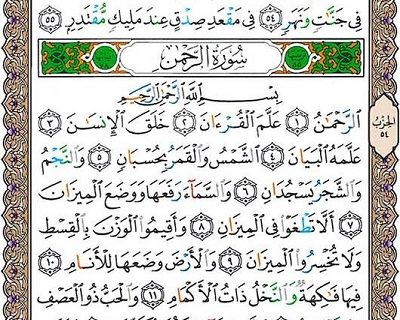 فِى جَنَّـٰتٍ وَنَهَرٍ ٥٤ فِى مَقْعَدِ صِدْقٍ عِندَ مَلِيكٍ مُّقْتَدِرٍۭ ٥٥
سُورَةُ الرَّحْمَٰن
بِسْمِ ٱللَّهِ ٱلرَّحْمَـٰنِ ٱلرَّحِيمِ
ٱلرَّحْمَـٰنُ ١ عَلَّمَ ٱلْقُرْءَانَ ٢ خَلَقَ ٱلْإِنسَـٰنَ ٣
عَلَّمَهُ ٱلْبَيَانَ ٤ ٱلشَّمْسُ وَٱلْقَمَرُ بِحُسْبَانٍ ٥ وَٱلنَّجْمُ
وَٱلشَّجَرُ يَسْجُدَانِ ٦ وَٱلسَّمَآءَ رَفَعَهَا وَوَضَعَ ٱلْمِيزَانَ
٧ أَلَّا تَطْغَوْا۟ فِى ٱلْمِيزَانِ ٨ وَأَقِيمُوا۟ ٱلْوَزْنَ بِٱلْقِسْطِ
وَلَا تُخْسِرُوا۟ ٱلْمِيزَانَ ٩ وَٱلْأَرْضَ وَضَعَهَا لِلْأَنَامِ ١٠
فِيهَا فَـٰكِهَةٌ وَٱلنَّخْلُ ذَاتُ ٱلْأَكْمَامِ ١١ وَٱلْحَبُّ ذُو ٱلْعَصْفِ
الحزب
٥٤